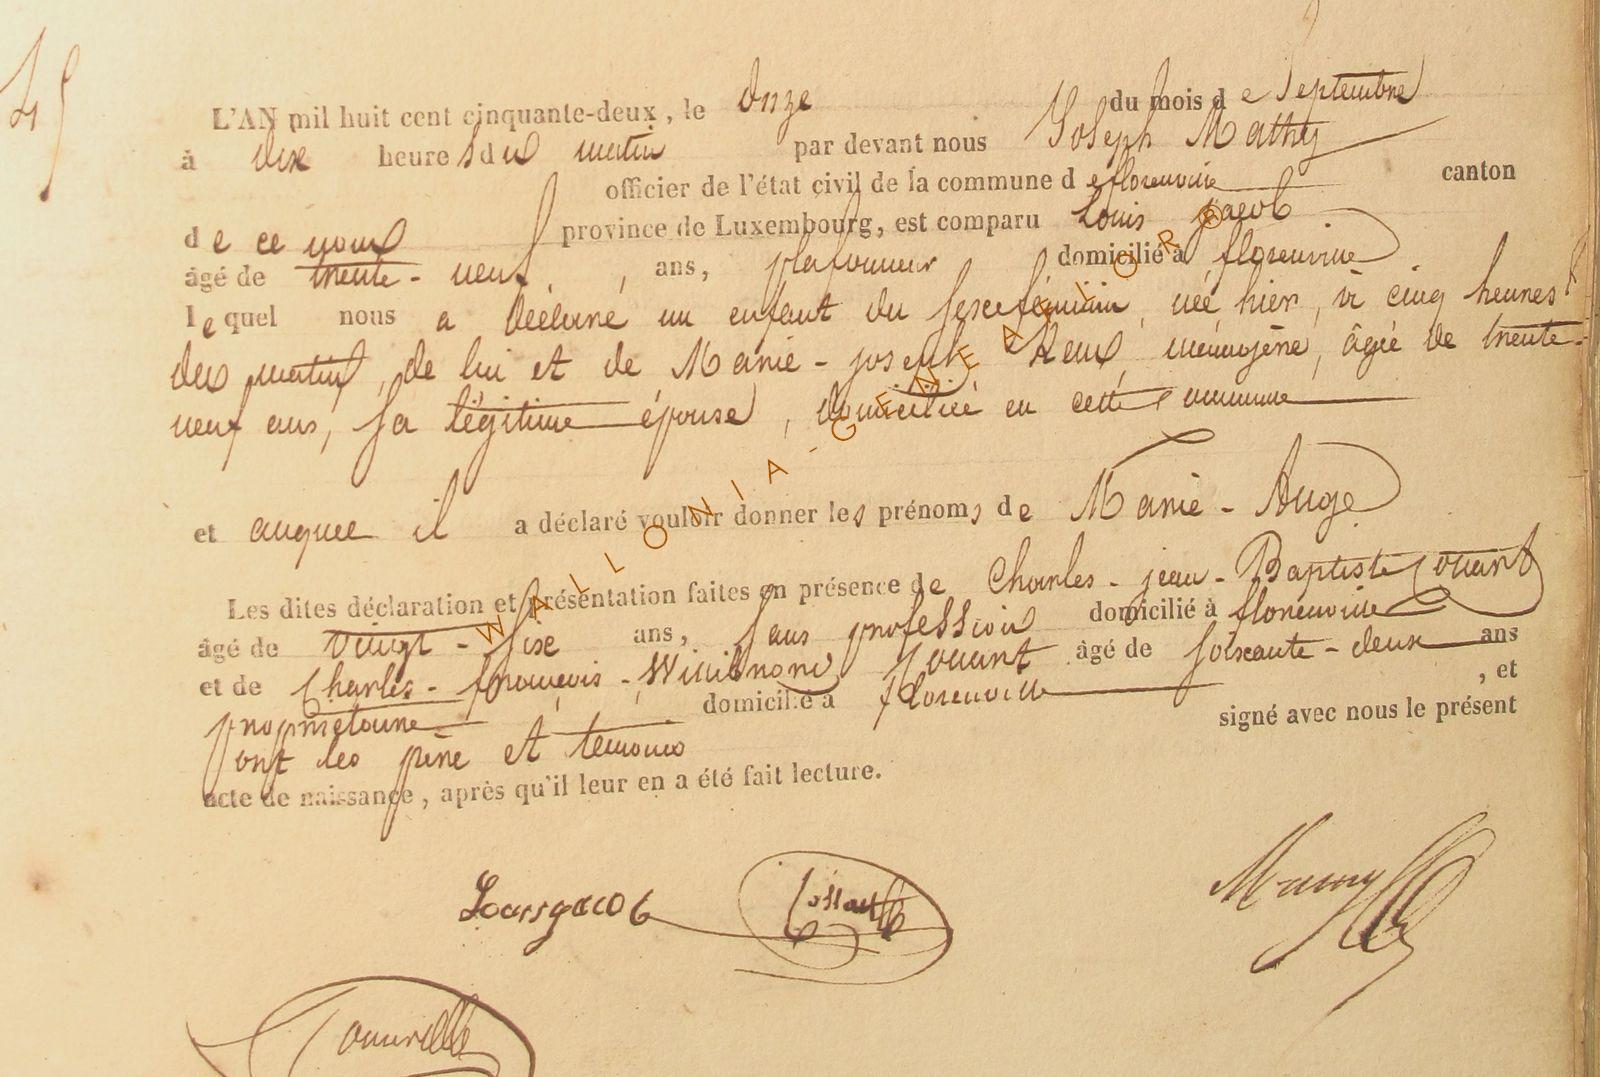 45
L'AN mil huit cent cinquante-deux, le onze du mois de Septembre
à dix heures du matin par devant nous Joseph Mathy
officier de l'état civil de la commune de florenville canton
de ce nom province de Luxembourg, est comparu Louis Jacob
âgé de trente-neuf ans, plafonneur domicilié à florenville
lequel nous a déclaré un enfant du sexe féminin, née hier, à cinq heures
du matin, de lui et de Marie-joseph ménagère, âgée de trente-
neuf ans, sa légitime épouse, domiciliée en cette commune
et auquel il a déclaré vouloir donner les prénoms de Marie-Ange
Les dites déclaration et présentation faites en présence de Charles-jean-Baptiste
âgé de vingt-six ans, sans profession domicilié à florenville
et de Charles-françois- âgé de soixante-deux ans
propriétaire domicilié à florenville , et
ont les père et témoins signé avec nous le présent
acte de naissance, après qu'il leur en a été fait lecture.
Louis jacob
WALLONIA-GENEALO RG